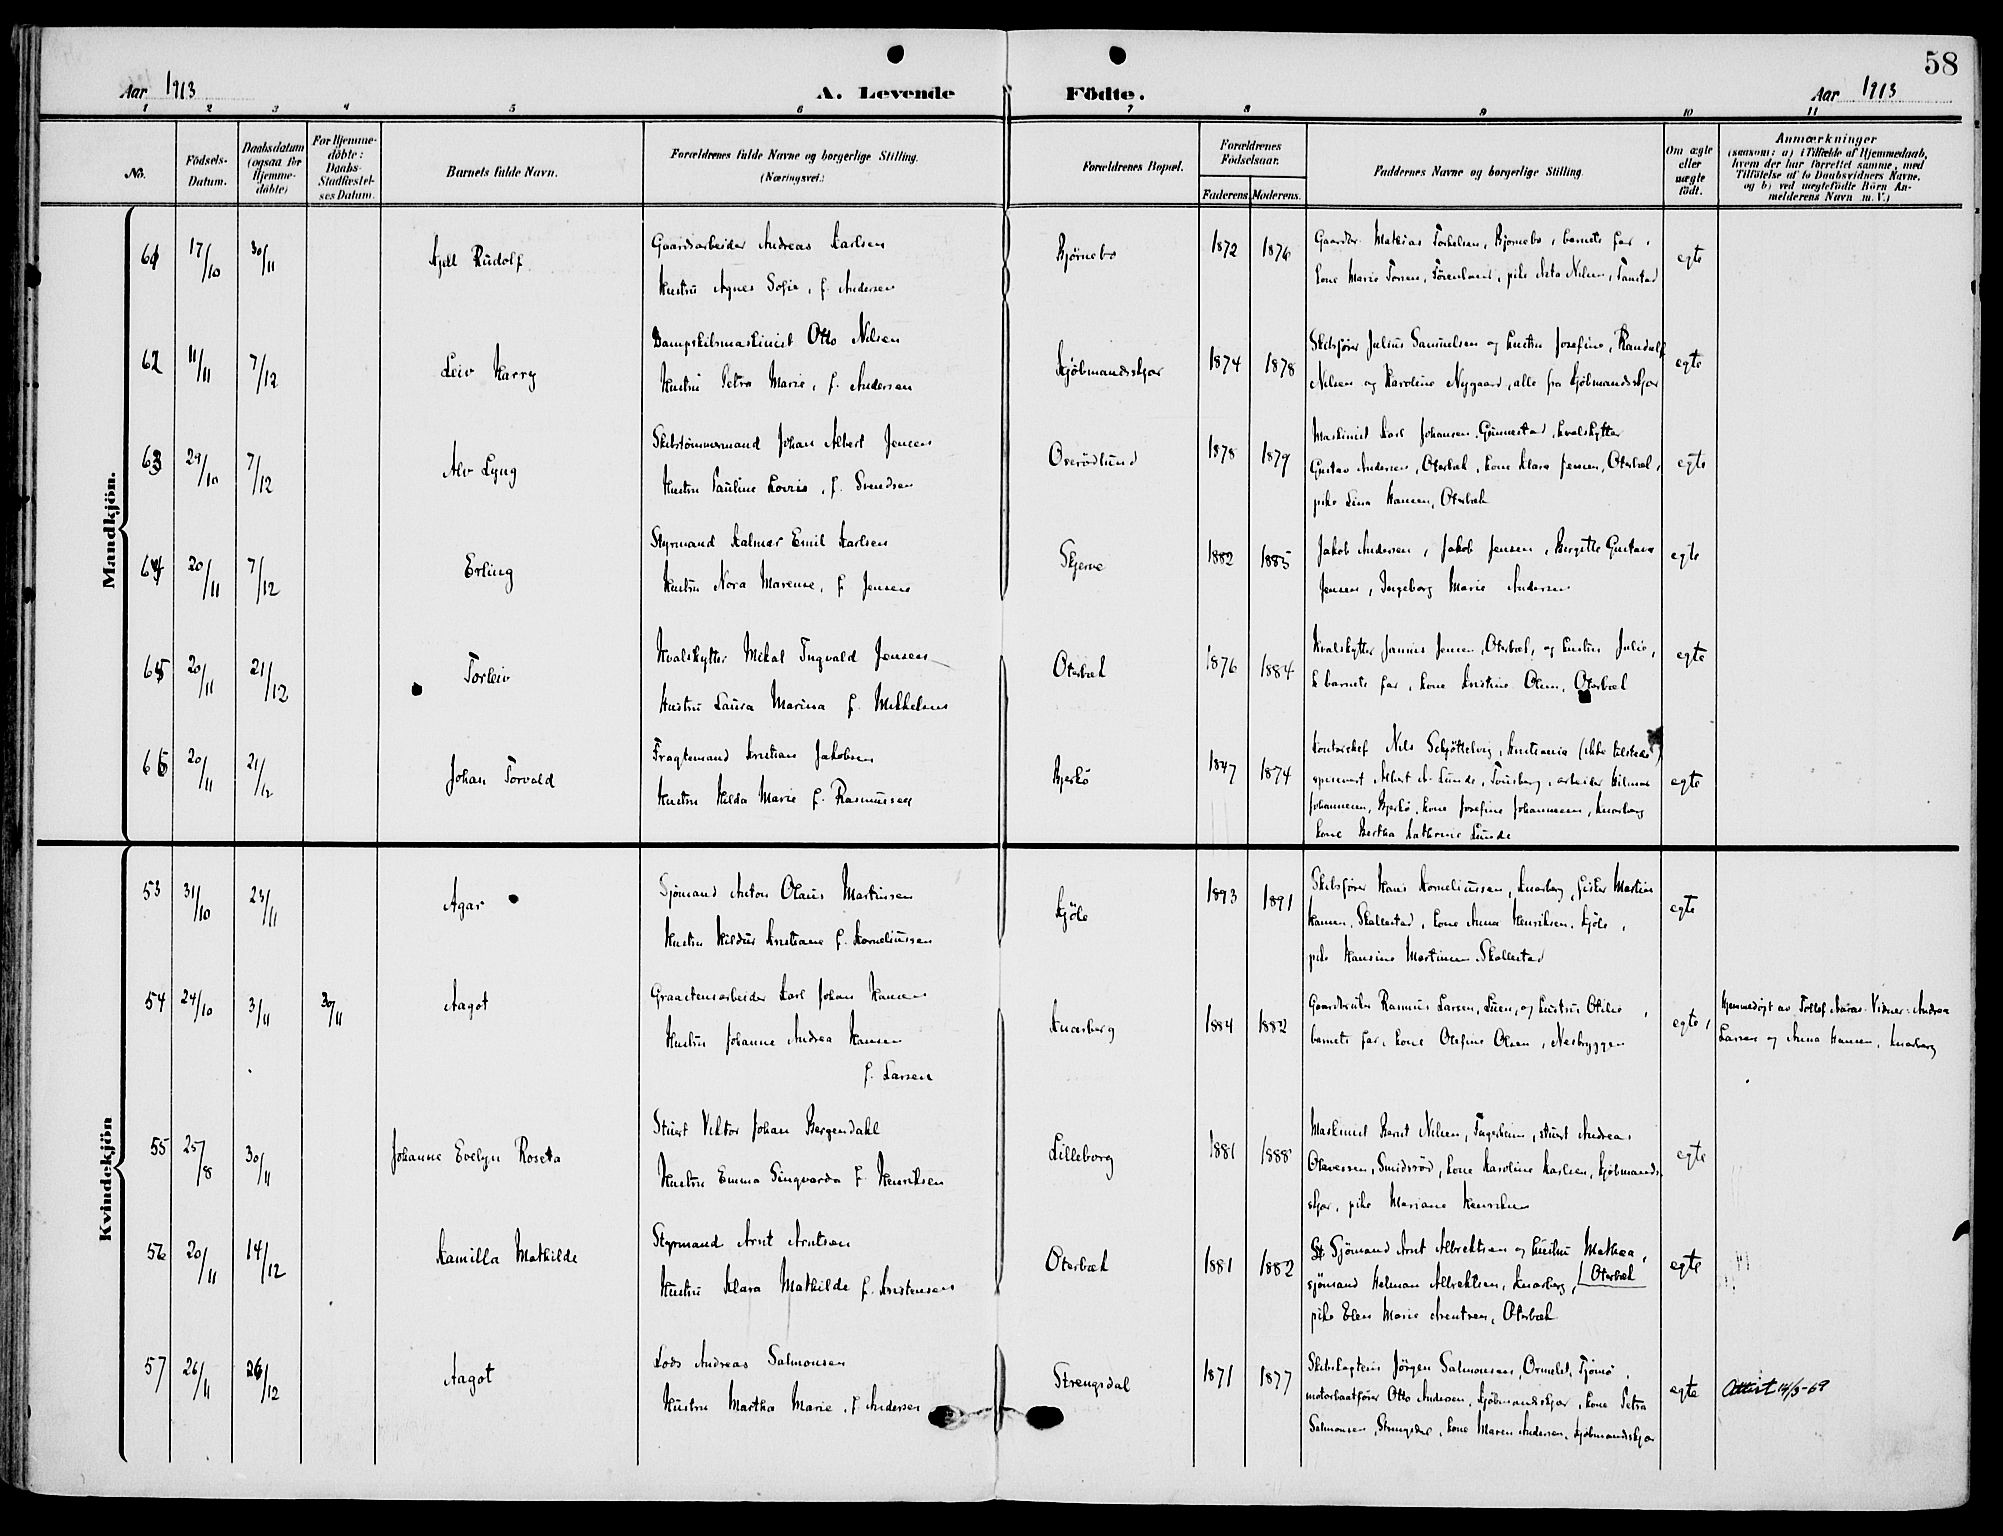 58
Aar 1913
A. Levende Födte.
Aar 1913
1 2 3 4 5 6 7 8 9 10 11
No.
Födsels-
Datum.
Daabsdatum
(ogsaa for
Hjemme-
döbte)
For Hjemme-
döbte:
Daabs-
Stadfæstel-
ses Datum.
Barnets fulde Navn.
Forældrenes fulde Navne og borgerlige Stilling.
(Næringsvei.)
Forældrenes Bopæl.
Forældrenes
Födselsaar.
Faderens Moderens.
Faddernes Navne og borgerlige Stilling.
Om ægte
eller
uægte
födt.
Anmærkninger
(saasom: a) i Tilfælde af Hjemmedaab,
hvem der har forrettet samme, med
Tilföielse af to Daabsvidners Navne,
og b) ved uægtefödte Börn An-
melderens Navn m. V.)
Mandkjön.
61 17/10 30/11 Kjell Rudolf
Gaardsarbeider Andreas Karlsen
Hustru Agnes Sofie, f. Andersen
Bjørnebo 1872 1876
Gaardbr. Mathias Torkelsen, Bjørnebo, barnets far,
kone Marie Torsen, pike Asta Nilsen,
egte
62 11/11 7/12 Leiv Harry
Dampskibsmaskinist Otto Nilsen
Hustru Petra Marie, f. Andersen
Kjøbmandsskjær 1874 1878
Skibsfører Julius Samuelsen og hustru Josefine, Randulf
Nilsen og Karoline Nygaard, alle fra Kjøbmandsskjær
egte
63 29/10 7/12 Alv Lyng
Skibstømmermand Johan Albert Jensen
Hustru Pauline Lovise, f. Svendsen
Oserødlund 1878 1879
Maskinist Karl Johansen, Gunnestad, hvalskytter
Gustav Andersen, Oterbæk, kone Klara Jensen, Oterbæk,
pike Lina Hansen, Oterbæk
egte
64 20/11 7/12 Erling
Styrmand Halmar Emil Karlsen
Hustru Nora Marense, f. Jensen
Skjerve 1882 1885
Jakob Andersen, Jakob Jensen, Bergitte Gustava
Jensen, Ingeborg Marie Andersen
egte
65 20/11 21/12 Torleiv
Hvalskytter Mikal Ingvald Jensen
Hustru Laura Marina f. Mikkelsen
Oterbæk 1876 1884
Hvalskytter Jannes Jensen, Oterbæk, og hustru Julie,
barnets far, kone Kristine Olsen, Oterbæk
egte
66 20/11 21/12 Johan Torvald
Fragtemand Kristian Jakobsen
Hustru Hilda Marie f. Rasmussen
Bjerkö 1847 1874
Kontorchef Nils Schjøttelvig, Kristiania (ikke tilstede)
Albert A. Lunde, Tønsberg, arbeider Hilmar
Johannesen, Bjerkö, kone Josefine Johannesen, Knarberg
kone Bertha Kathrine Lunde
egte
Kvindekjön
53 31/10 23/11 Agar
Sjömand Anton Olaus Martinsen
Hustru Hildur Kristiane f. Korneliussen
Kjöle 1893 1891
Skibsfører Hans Korneliussen, Knarberg, fisker Martin
Hansen, Skallestad, kone Anna Henriksen, Kjöle,
pike Hansine Martinsen, Skallestad
egte
54 24/10 3/11 30/11 Aagot
Graastensarbeider Karl Johan Hansen
Hustru Johanne Andrea Hansen
f. Larsen
Knarberg 1884 1882
Gaardbruker Rasmus Larsen, Luen, og hustru Otilie,
barnets far, kone Olefine Olsen, Nesbryggen
egte
Hjemmedøpt av Tollef Aaras. Vidner: Andrea
Larsen og Anna Hansen, Knarberg
55 25/8 30/11 Johanne Evelyn Roseta
Stuert Viktor Johan Bergendahl
Hustru Emma Singvarda f. Henriksen
Lilleborg 1881 1888
Maskinist Bernt Nilsen, stuert Andreas
Olavessen, Smidsrød, kone Karoline Karlsen, Kjøbmands-
skjær, pike Mariane Henriksen
egte
56 20/11 14/12 Kamilla Mathilde
Styrmand Arnt Arntsen
Hustru Klara Mathilde f. Kristensen
Oterbæk 1881 1882
Sjömand Arnt Albrektsen og hustru Mathea,
Oterbæk
sjömand Helman Albrektsen, Knarberg,
pike Elen Marie Arentsen, Oterbæk
egte
57 26/11 26/12 Aagot
Lods Andreas Salmonsen
Hustru Martha Marie f. Andersen
Strengsdal 1871 1877
Skibskaptein Jörgen Salmonsen, Ormelet, Tjömö,
motorbaatfører Otto Andersen, Kjøbmandsskjær, kone Petra
Salmonsen, Strengsdal, kone Maren Andersen, Kjøbmandsskjær
egte
Attest 14/3-69